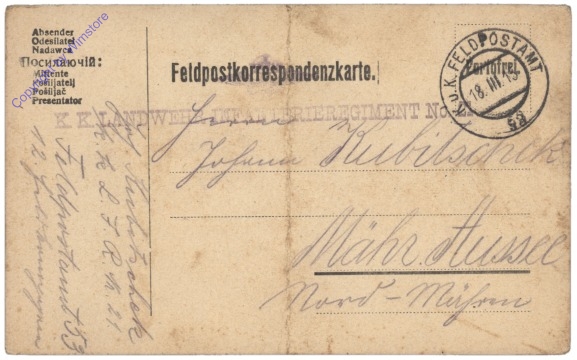 Absender
Odesílatel
Nadawca
Посилаючій:
Mittente
Pošiljatelj
Pošiljač
Presentator
Copyright by Wimstore
Feldpostkorrespondenzkarte.
Portofrei
K.u.K. FELDPOSTAMT
18.III.15
K.K. LANDWEHR INFANTERIEREGIMENT No. 21
Herrn
Johann Kubitschek
Mähr. Aussee
Nord-Mähren
Kubitschek
K. K. L. I. R. Nr. 21
Feldpostamt 53
12